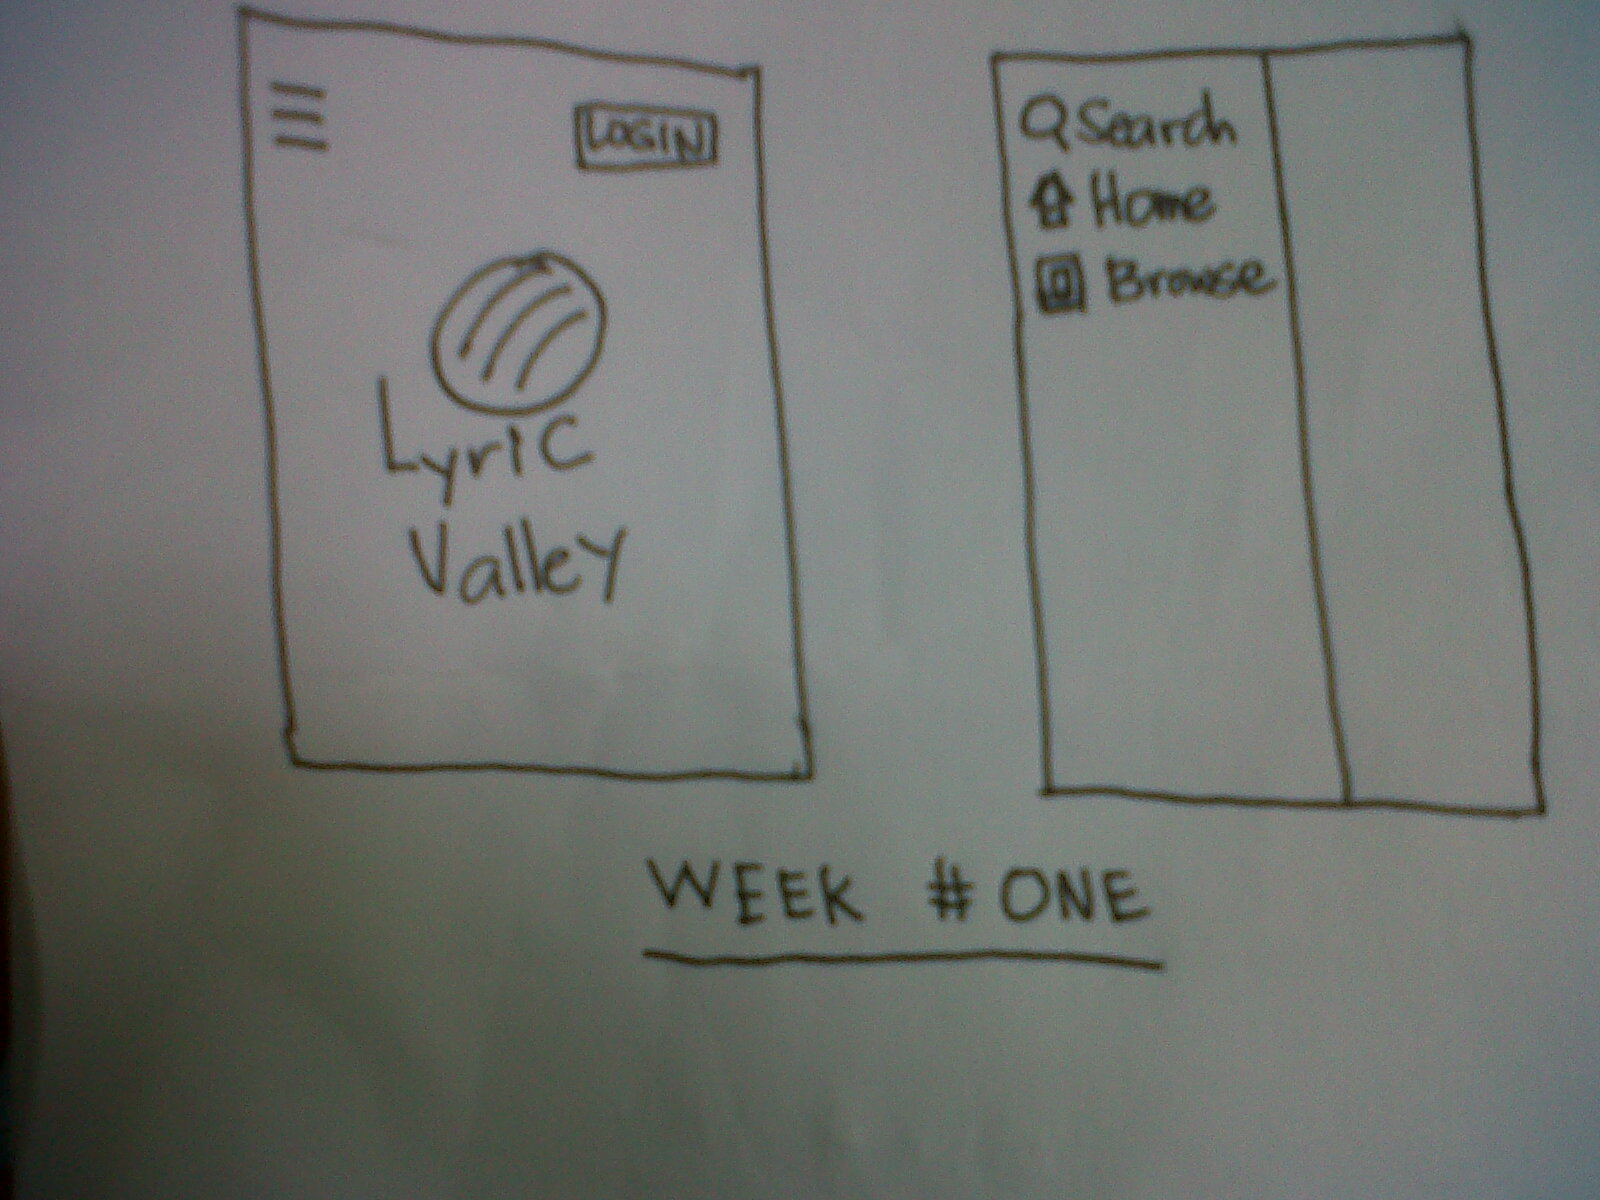 LOGIN
Lyric
Valley
Search
Home
Browse
WEEK # ONE